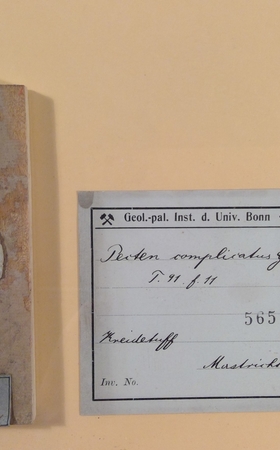 Geol.-pal. Inst. d. Univ. Bonn
Pecten complicatus
T. 91. f. 11
565
Kreidetuff
Mastricht
Inv. No.